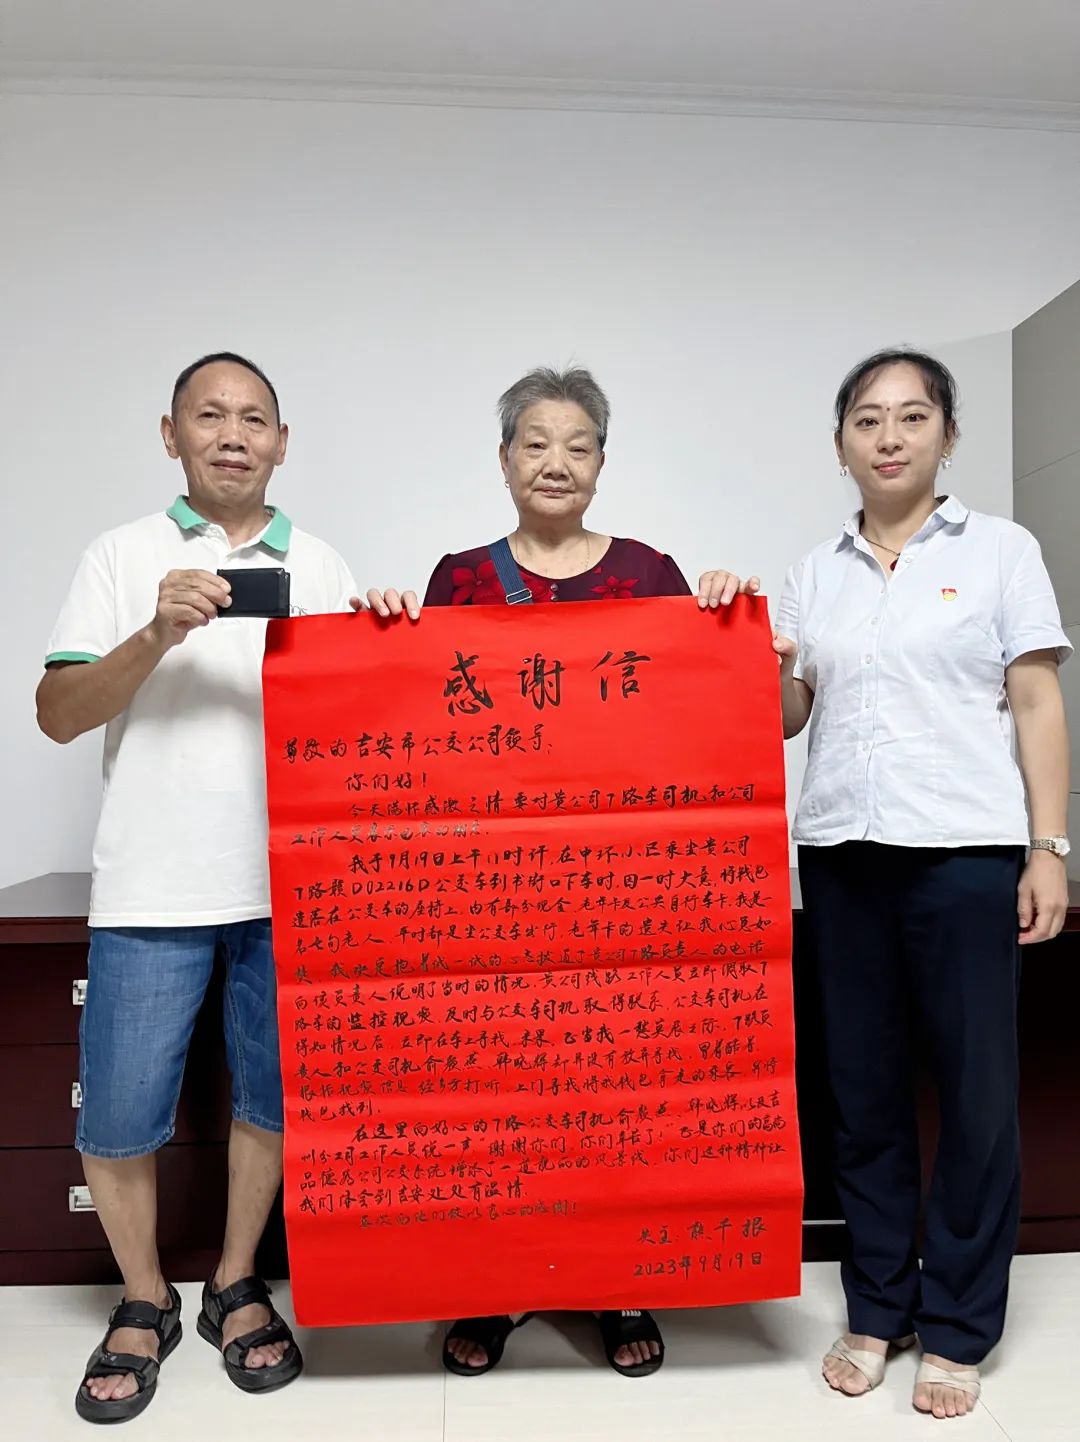 感谢信
尊敬的吉安市公交公司领导：
你们好！
今天满怀感激之情要对贵公司7路车司机和公司
工作人员表示由衷的谢意。
我于9月19日上午11时许，在中环小区乘坐贵公司
7路赣D02216D公交车到书街口下车时，因一时大意，将钱包
遗落在公交车的座椅上，内有部分现金、老年卡及公共自行车卡，我是一
名七旬老人，平时都是坐公交车出行，老年卡的遗失让我心急如
焚，我便抱着试一试的心态拨通了贵公司7路负责人的电话
向该负责人说明了当时的情况，贵公司线路工作人员立即调取7
路车的监控视频，及时与公交车司机取得联系，公交车司机在
得知情况后，立即在车上寻找，未果。正当我一愁莫展之际，7路负
责人和公交司机俞 燕、韩晓辉却并没有放弃寻找，冒着酷暑、
根据视频信息 经多方打听，上门寻找将我钱包拿走的乘客，并将
钱包找到。
在这里向好心的7路公交车司机俞 燕、韩晓辉，以及吉
州分公司工作人员说一声“谢谢你们，你们辛苦了！”正是你们的高尚
品德为公司公交系统增添了一道亮丽的风景线，你们这种精神让
我们体会到吉安处处有温情。
再次向他们致以衷心的感谢！
失主：熊千根
2023年9月19日